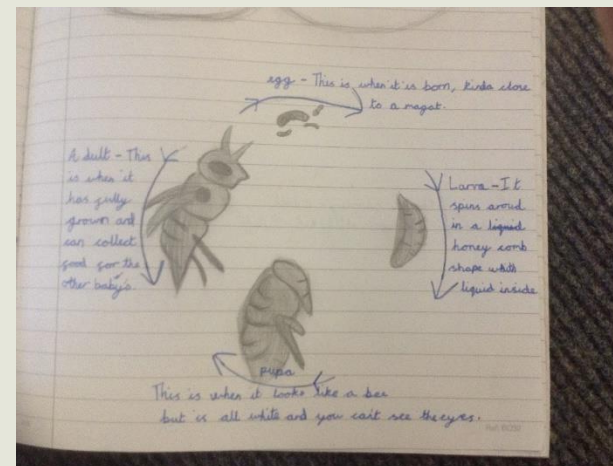 egg - This is when it is born, kinda close
to a magat.
Adult - This
is when it
has fully
grown and
can collect
food for the
other baby's.
Larva - It
spins aroud
in a liquid
honey comb
shape white
liquid inside
pupa
This is when it looks like a bee
but is all white and you can't see the eyes.